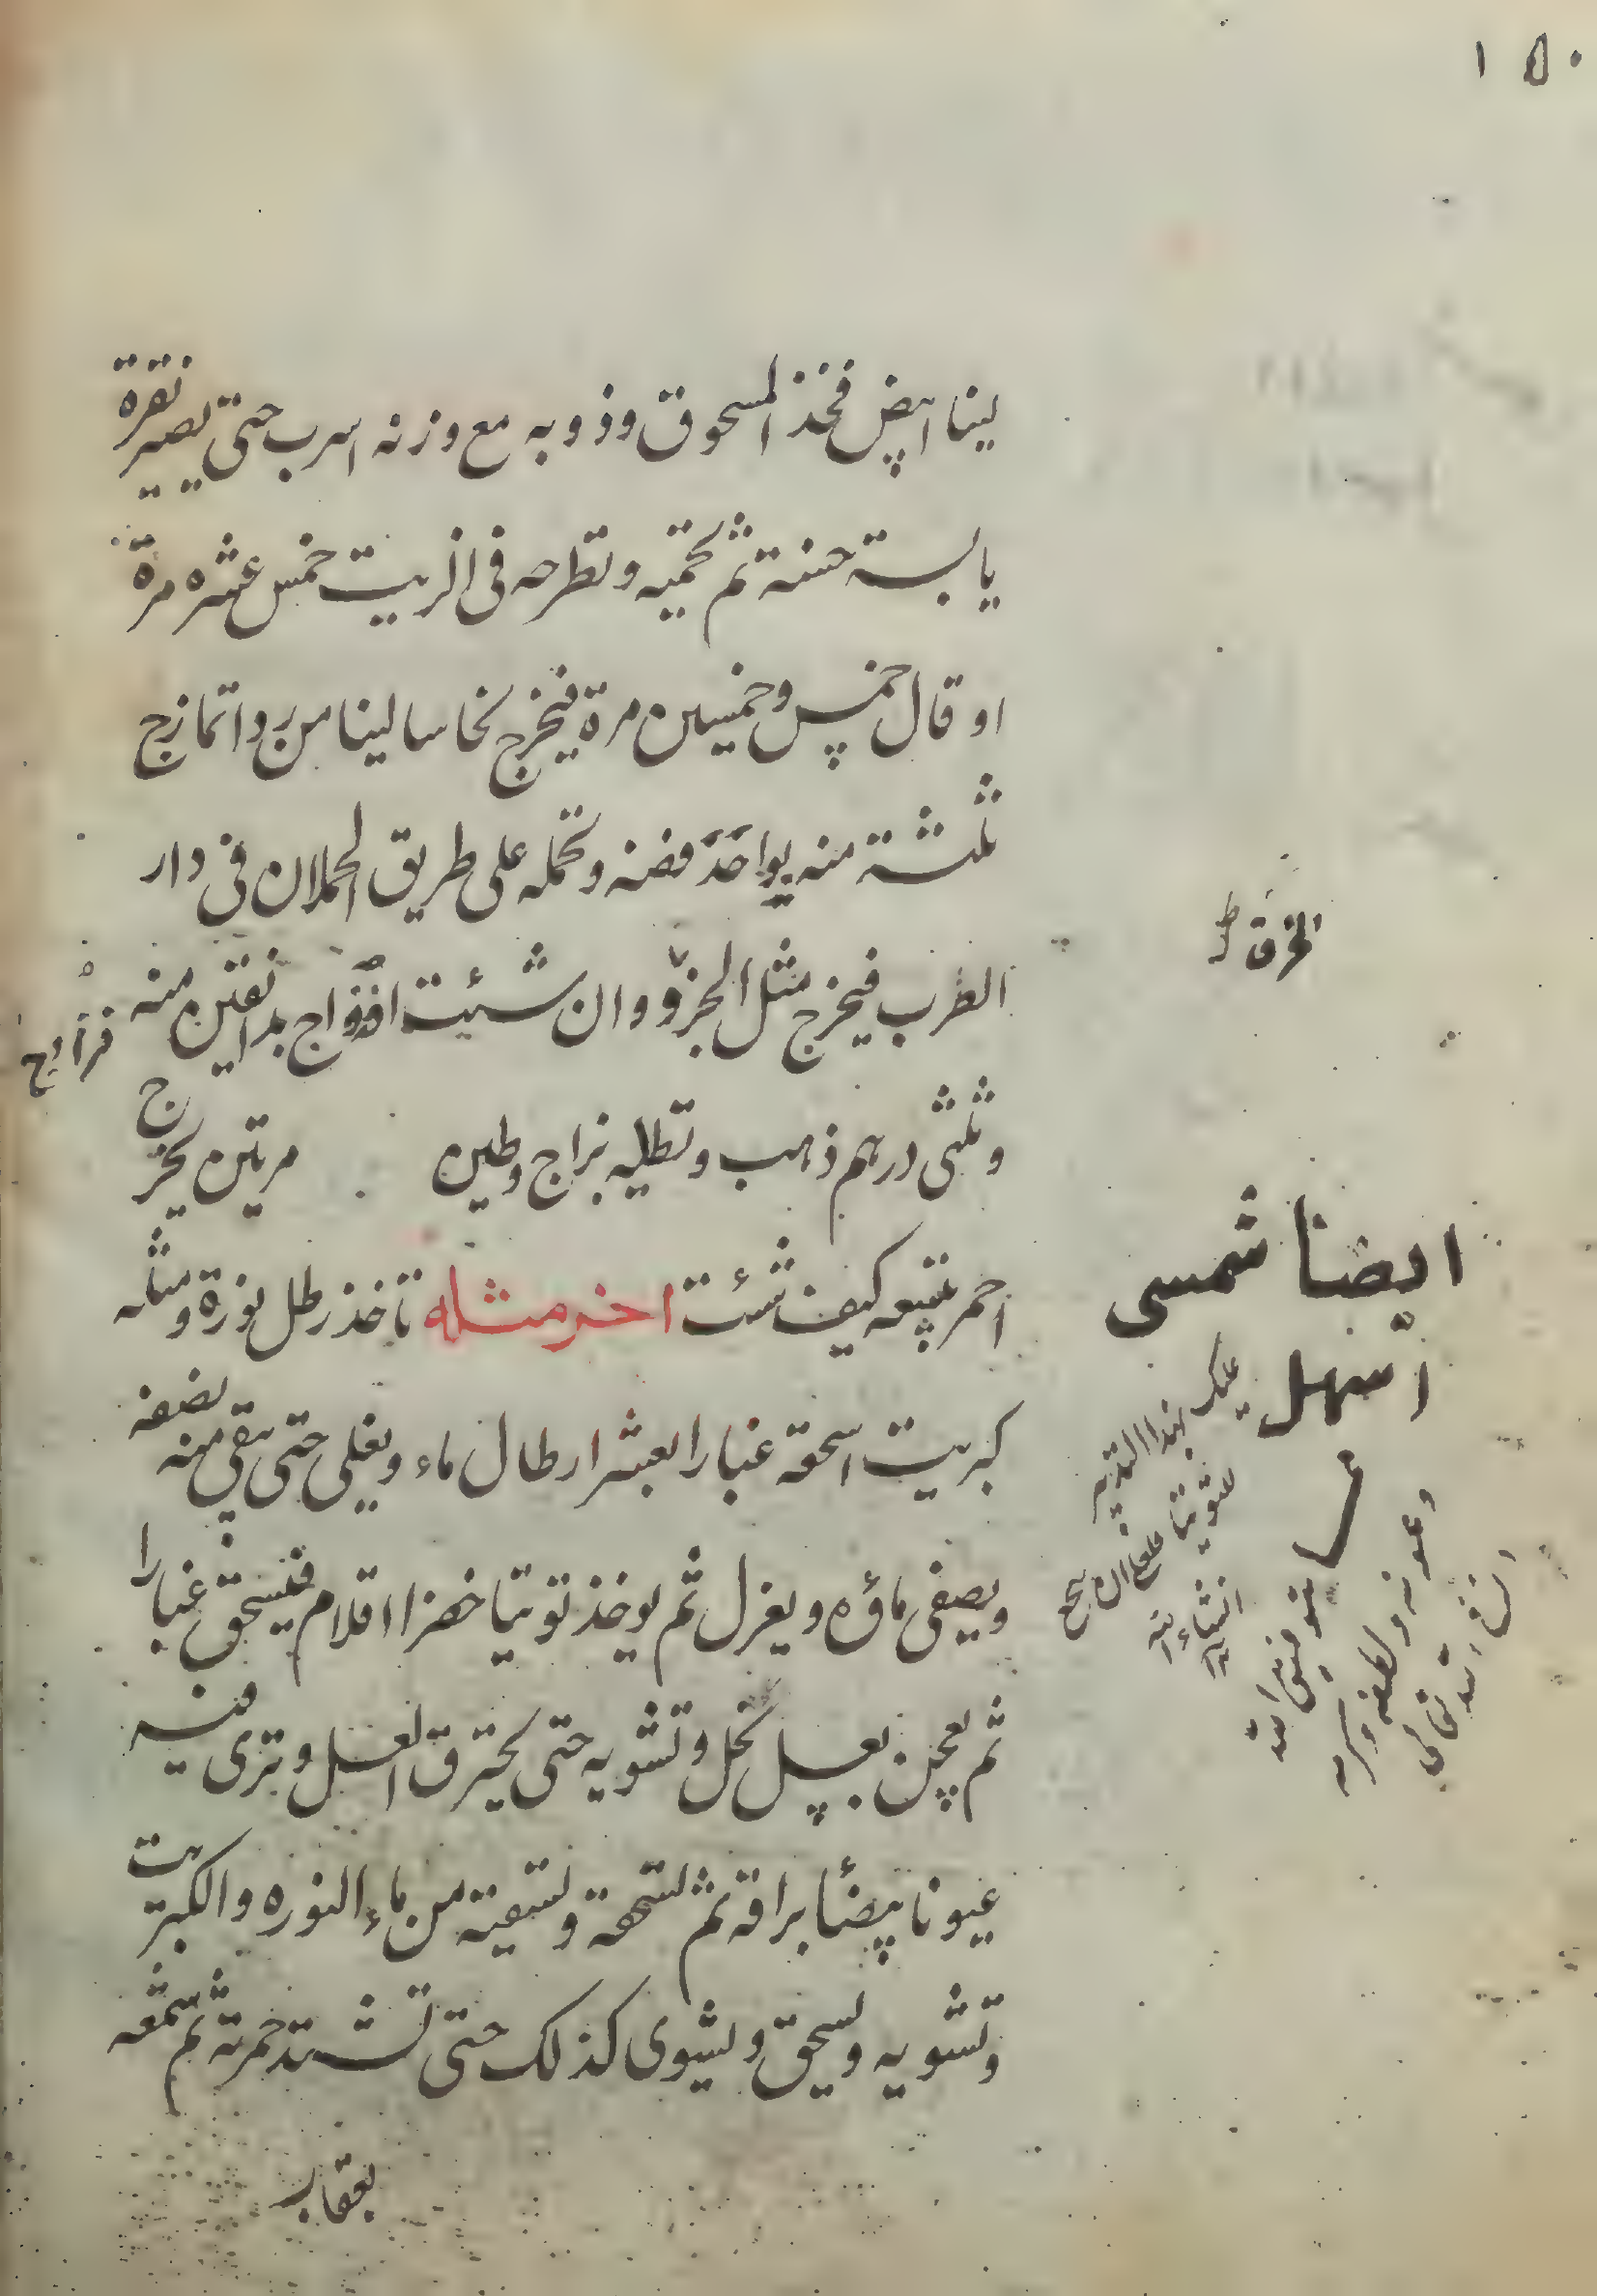 ١٥٠
لينا ابيض فخذ المسحوق وذوبه مع وزنه اسرب حتى يصير نقرة
يابسة حسنة ثم تحميه وتطرحه فى الزيت خمس عشره مرة
او قال خمس وخمسين مرة فيخرج نحاسا لينا من
ثلثة منه بواحد فضه وتحمله على طريق الحملان فى دار
الضرب فيخرج مثل الجزؤ وان شئت بدانقين منه
وثلثى درهم ذهب وتطليه بزاج وطين مرتين يخرج
احمر تبيعه كيف شئت اخر مثله تاخذ رطل نورة ومثله
كبريت اسحقه غبارا بعشر ارطال ماء ويغلى حتى يبقى منه نصفه
ويصفى ماؤه ويعزل ثم يوخذ توتيا خضرا اقلام فيسحق غبارا
ثم يعجن بعسل نحل وتشويه حتى يحترق العسل وترى فيه
عيونا بيضًا براقه ثم تسحقه وتسقيه من ماء النوره والكبريت
وتشويه وتسحق وتشوى كذلك حتى تشتد حمرته ثم تشمعه
بعقاب
ايضا شمسى
اسهل
عليك بهذا التدبير
انشاء الله
بتوفيق الله
وعونه ولطفه وكرمه